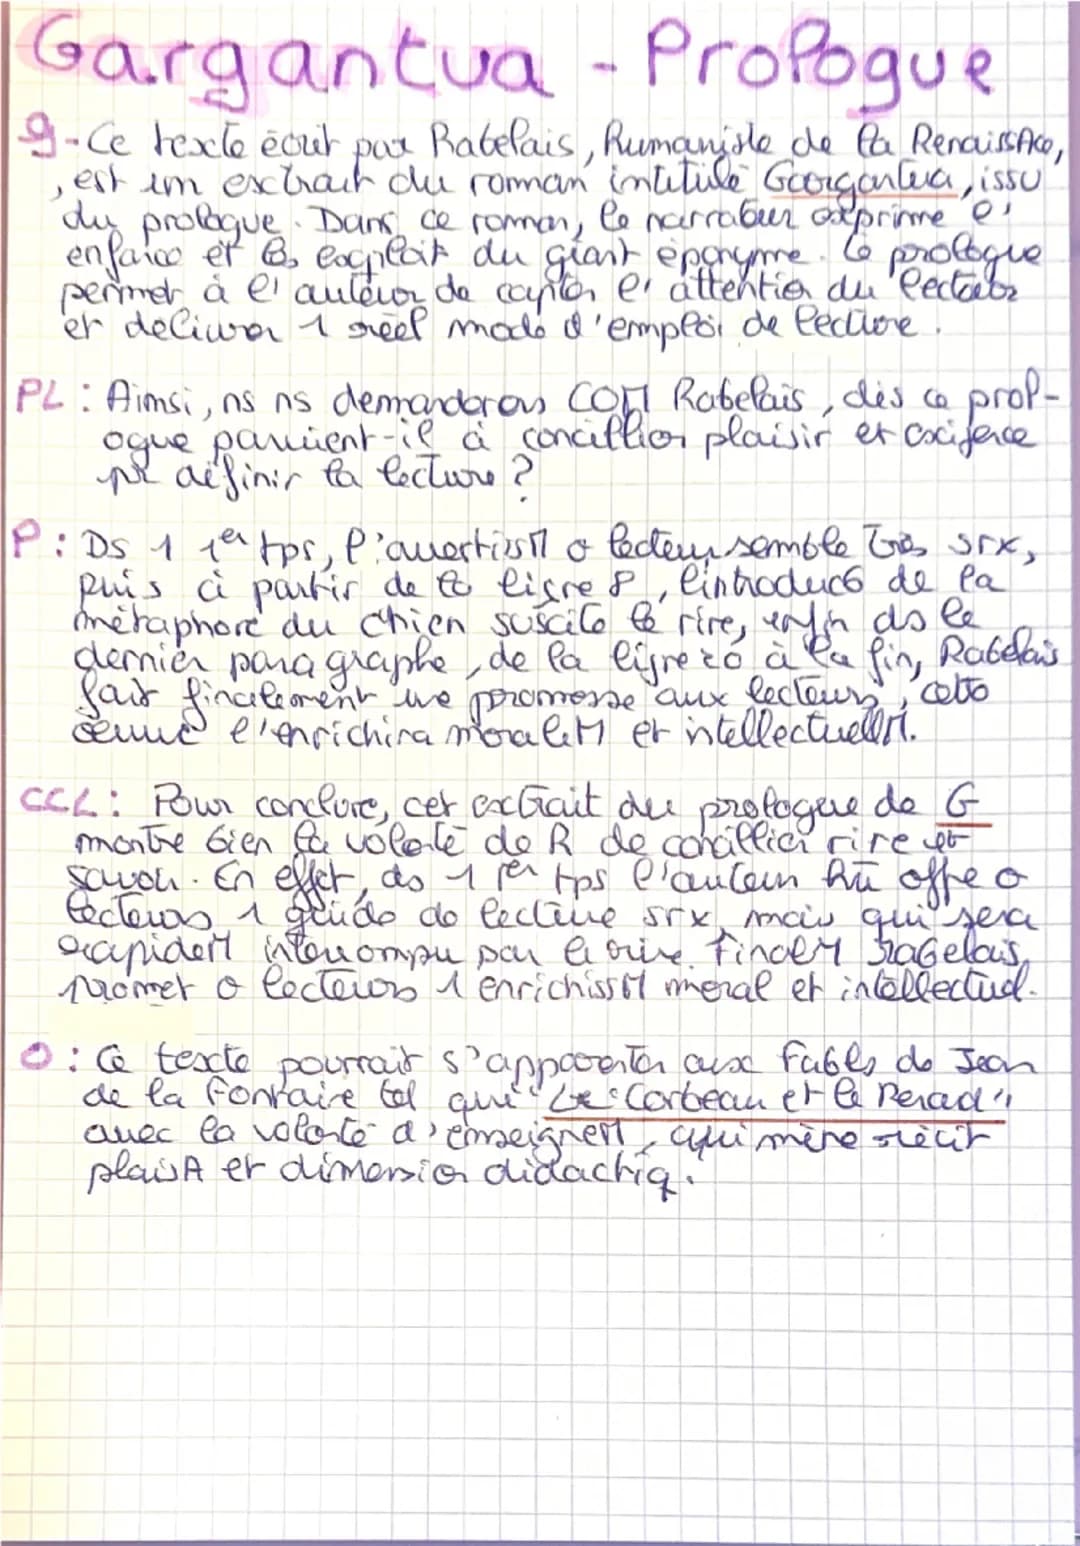 Gargantua - Prologue
g - Ce texte écrit par Rabelais, Humaniste de la RenaissAce,
, est un extrait du roman intitulé Gargantua, issu
du prologue. Dans ce roman, le narrateur exprime l'
enfance et les exploit du géant éponyme. Le prologue
permet à l'auteur de capter l'attention du lecteur
et délivrer 1 réel mode d'emploi de lecture.
PL : Ainsi, ns ns demanderons COM Rabelais, dès ce prol-
ogue parvient-il à concillier plaisir et exigence
pr définir la lecture ?
P : Ds 1 1er tps, l'avertissM o lecteur semble très srx,
puis à partir de la ligne 8, l'introduc6 de la
métaphore du chien suscite le rire, enfin ds le
dernier paragraphe, de la ligne 20 à la fin, Rabelais
fait finalement une promesse aux lecteurs, cette
œuvre l'enrichira moraleM et intellectuellM.
CCL : Pour conclure, cet extrait du prologue de G
montre bien la volonté de R de concillier rire et
savoir. En effet, ds 1 1er tps l'auteur offre o
lecteurs 1 guide de lecture srx, mais qui sera
rapideM interrompu par le rire. FinaleM Rabelais,
promet o lecteurs 1 enrichissM moral et intellectuel.
O : Ce texte pourrait s'apparenter aux Fables de Jean
de la Fontaine tel que "Le Corbeau et le Renard",
avec la volonté d'enseigneM, qui mène récit
plaisA et dimension didactiq.